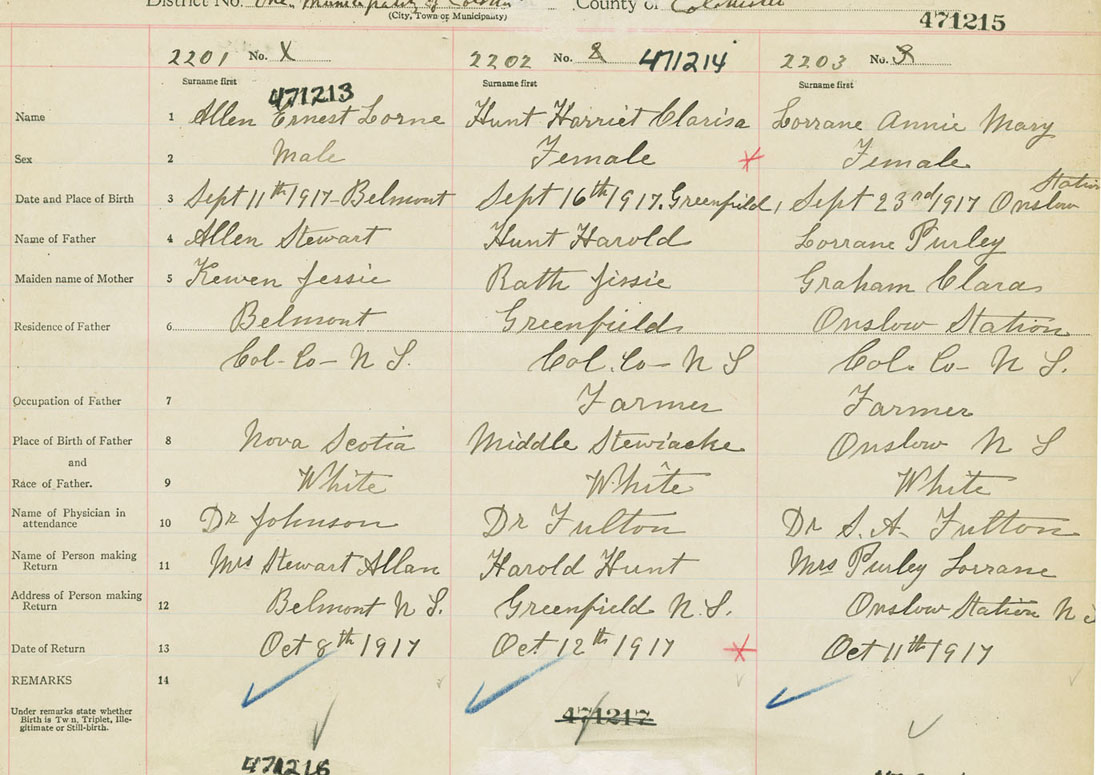 District No. One Municipality of County of Colchester
(City, Town or Municipality)
471215
2201 No. X
2202 No. 2 471214
2203 No. 3
Surname first
Surname first
Surname first
471213
Name 1 Allen Ernest Lorne Hunt Harriet Clarisa Lorrane Annie Mary
Sex 2 Male Female Female
Station
Date and Place of Birth 3 Sept 11th 1917 - Belmont Sept 16th 1917. Greenfield, Sept 23rd 1917 Onslow
Name of Father 4 Allen Stewart Hunt Harold Lorrane Purley
Maiden name of Mother 5 Kewen Jessie Rath Jissie Graham Clara
Residence of Father 6 Belmont Greenfields Onslow Station
Col-Co- N S. Col. Co- N S Col. Co- N S.
Occupation of Father 7 Farmer Farmer
Place of Birth of Father 8 Nova Scotia Middle Stewiacke Onslow N S
and
Race of Father. 9 White White White
Name of Physician in
attendance 10 Dr Johnson Dr Fulton Dr S. A. Fulton
Name of Person making
Return 11 Mrs Stewart Allan Harold Hunt Mrs Purley Lorrane
Address of Person making
Return 12 Belmont N S. Greenfield N. S. Onslow Station N
Date of Return 13 Oct 8th 1917 Oct 12th 1917 Oct 11th 1917
REMARKS 14
Under remarks state whether
Birth is Tw n, Triplet, Ille-
gitimate or Still-birth.
471217
471216